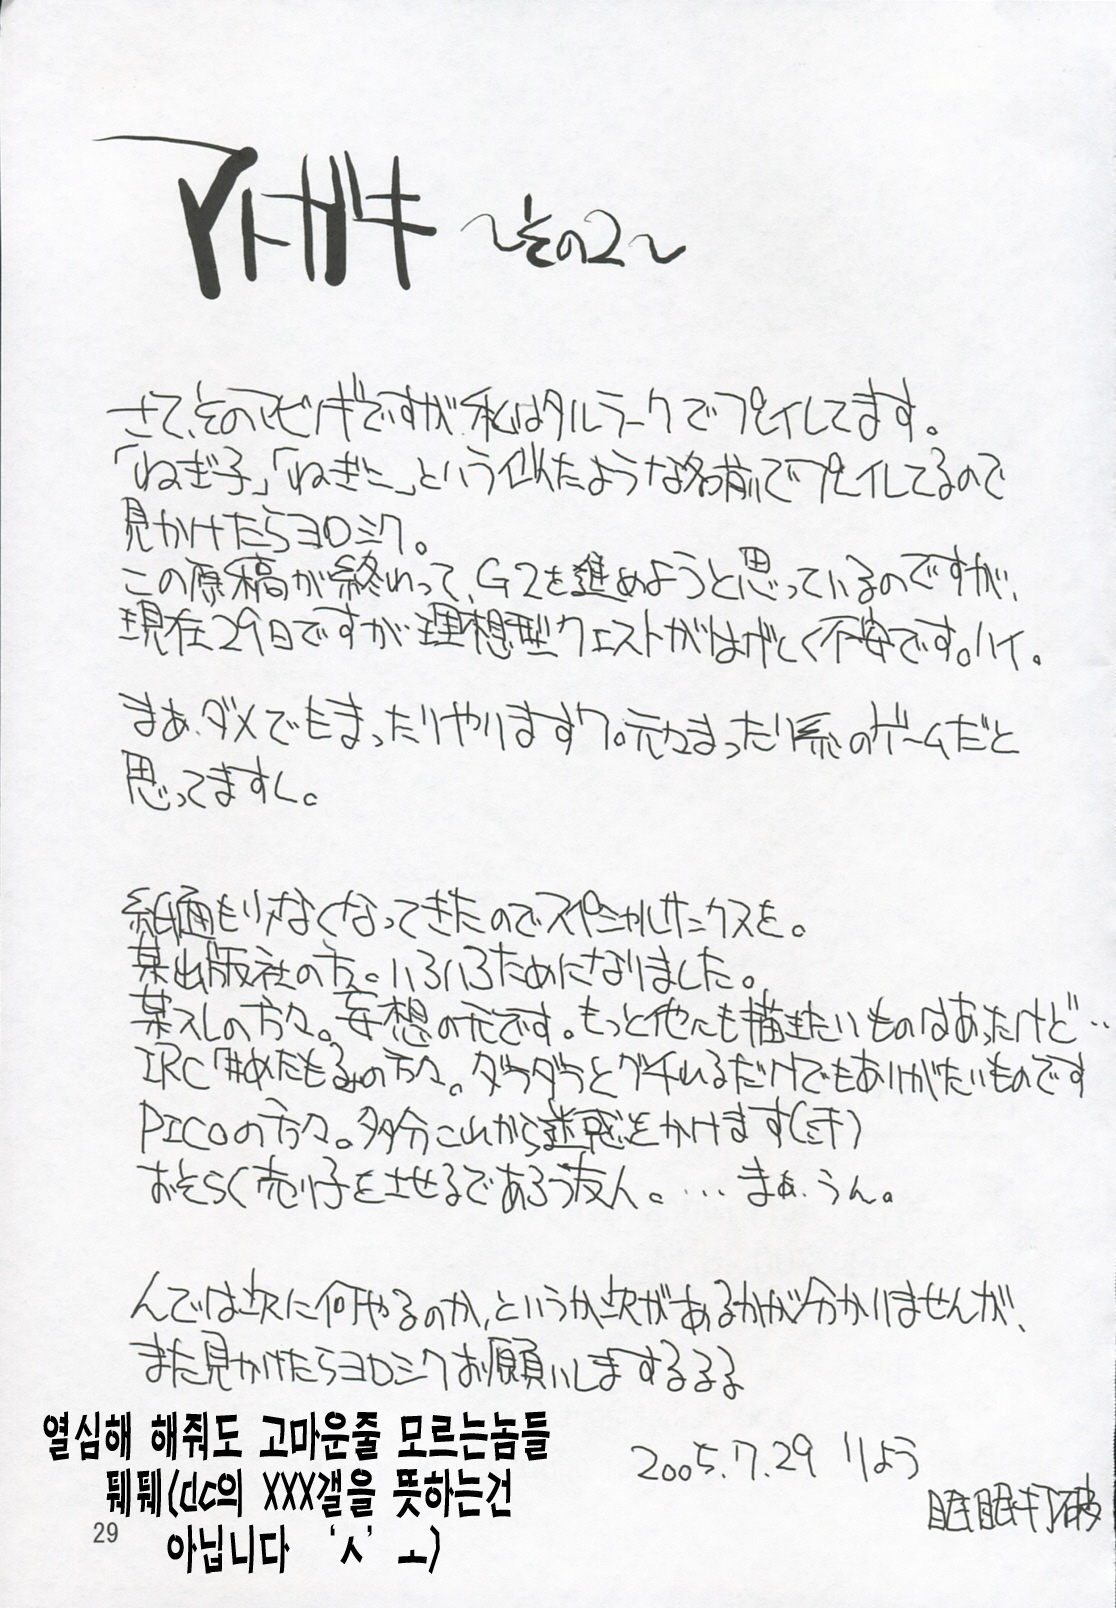 アトガキ ～その2～
さて、そのマビノギですが、私はタルラークでプレイしてます。
「ねぎ子」「ねぎこ」という似たような名前でプレイしてるので
見かけたらヨロシク。
この原稿が終わって、G2を進めようと思っているのですが、
現在29日ですが理想型クエストがはげしく不安です。ハイ。
まあ、ダメでもまったりやりますワ。元々まったり系のゲームだと
思ってますし。
紙面も少なくなってきたのでスペシャルサンクスを。
某出版社の方。いろいろためになりました。
某スレの方々。妄想の元です。もっと他にも描きたいものはあったけど…
IRC「#めたもる」の方々。ダラダラとグチれるだけでもありがたいものです
PICOの方々。多分これから迷惑をかけます(汗)
おそらく売り子をさせるであろう友人。…まぁ、うん。
んでは次に何やるのか、というか次があるかが分かりませんが、
また見かけたらヨロシクお願いしまするるる
2005.7.29 りょう
眠眠打破
열심해 해줘도 고마운줄 모르는놈들
퉤퉤(dc의 XXX갤을 뜻하는건
아닙니다 'ㅅ' ㅗ)
29